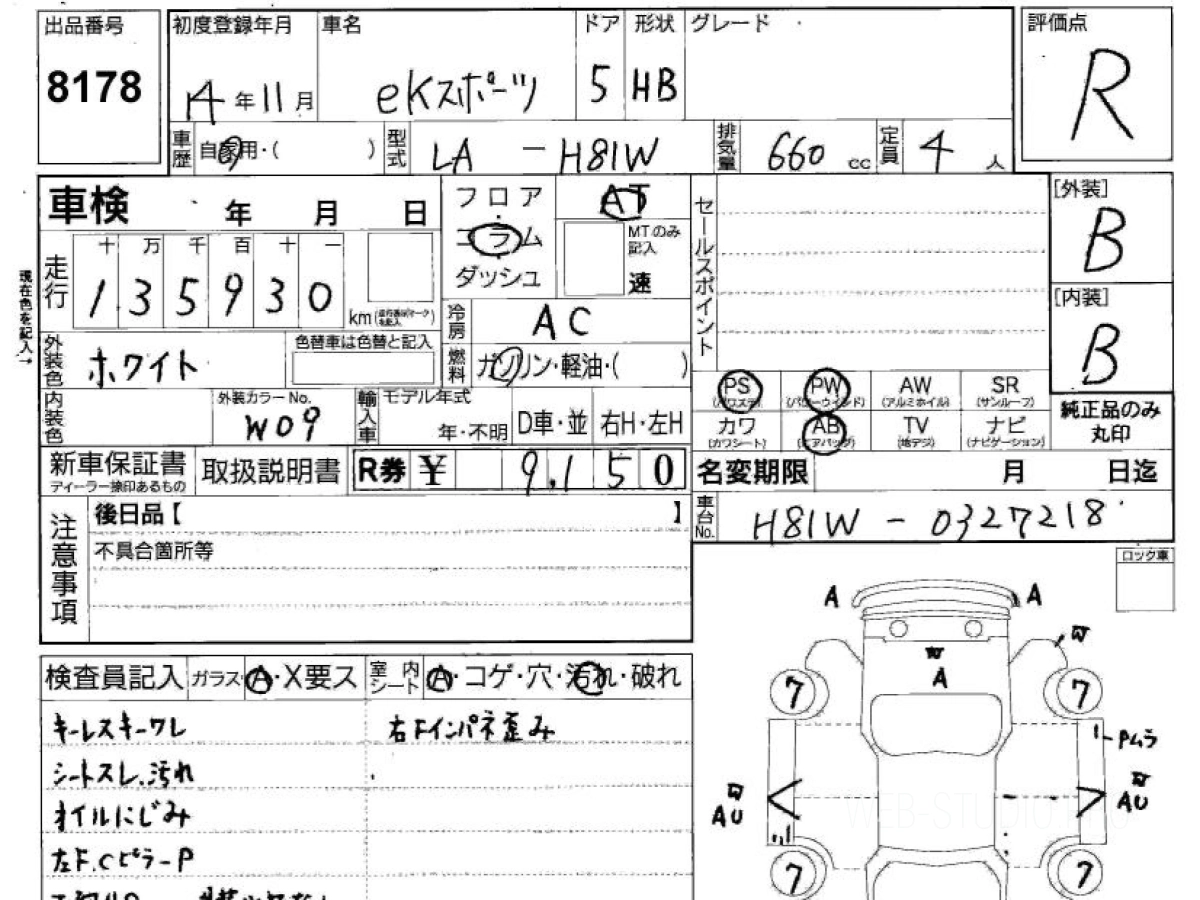 出品番号 初度登録年月 車名 ドア 形状 グレード 評価点
8178 14年11月 eKスポーツ 5 HB R
車歴 自家用・( ) 型式 LA - H81W 排気量 660 cc 定員 4 人
車検 年 月 日 フロア AT セールスポイント [外装]
コラム MTのみ記入 B
十 万 千 百 十 一 ダッシュ 速
走行 1 3 5 9 3 0 km [内装]
現在色を記入→ 冷房 AC B
外装色 ホワイト 色替車は色替と記入 燃料 ガソリン・軽油・( )
PS (パワステ) PW (パワーウインド) AW (アルミホイル) SR (サンルーフ)
内装色 外装カラーNo. W09 輸入車 モデル年式 年・不明 D車・並 右H・左H
カワ (カワシート) AB (エアバッグ) TV (地デジ) ナビ (ナビゲーション) 純正品のみ丸印
新車保証書 ディーラー捺印あるもの 取扱説明書 R券 ¥ 9,150 名変期限 月 日迄
注意事項 後日品【 】 車台No. H81W - 0327218
不具合箇所等
ロック車
A A
A
検査員記入 ガラス・A・X要ス 室内シート A・コゲ・穴・汚れ・破れ
7 7
キーレスキーワレ 右Fインパネ歪み
Pムラ
シートスレ、汚れ
AU AU
オイルにじみ
WEB-STUDIO.PRO
左F.Cピラー P
7 7